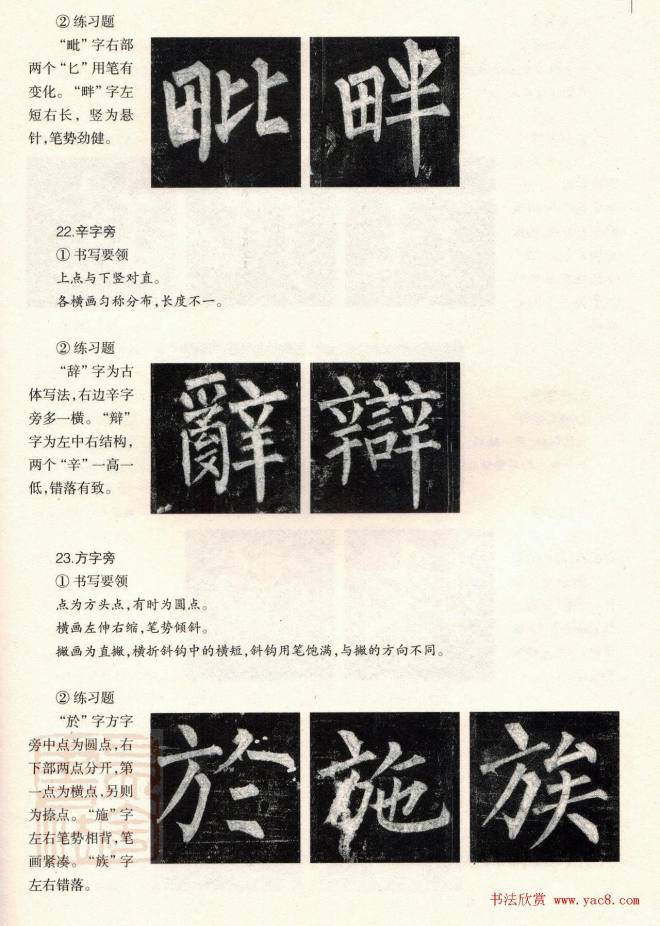 ② 练习题
“毗”字右部
两个“匕”用笔有
变化。“畔”字左
短右长，竖为悬
针，笔势劲健。
毗 畔
22.辛字旁
① 书写要领
上点与下竖对直。
各横画匀称分布，长度不一。
② 练习题
“辞”字为古
体写法，右边辛字
旁多一横。“辩”
字为左中右结构，
两个“辛”一高一
低，错落有致。
辭 辯
23.方字旁
① 书写要领
点为方头点，有时为圆点。
横画左伸右缩，笔势倾斜。
撇画为直撇，横折斜钩中的横短，斜钩用笔饱满，与撇的方向不同。
② 练习题
“於”字方字
旁中点为圆点，右
下部两点分开，第
一点为横点，另则
为捺点。“施”字
左右笔势相背，笔
画紧凑。“族”字
左右错落。
於 施 族
书法欣赏 www.yac8.com